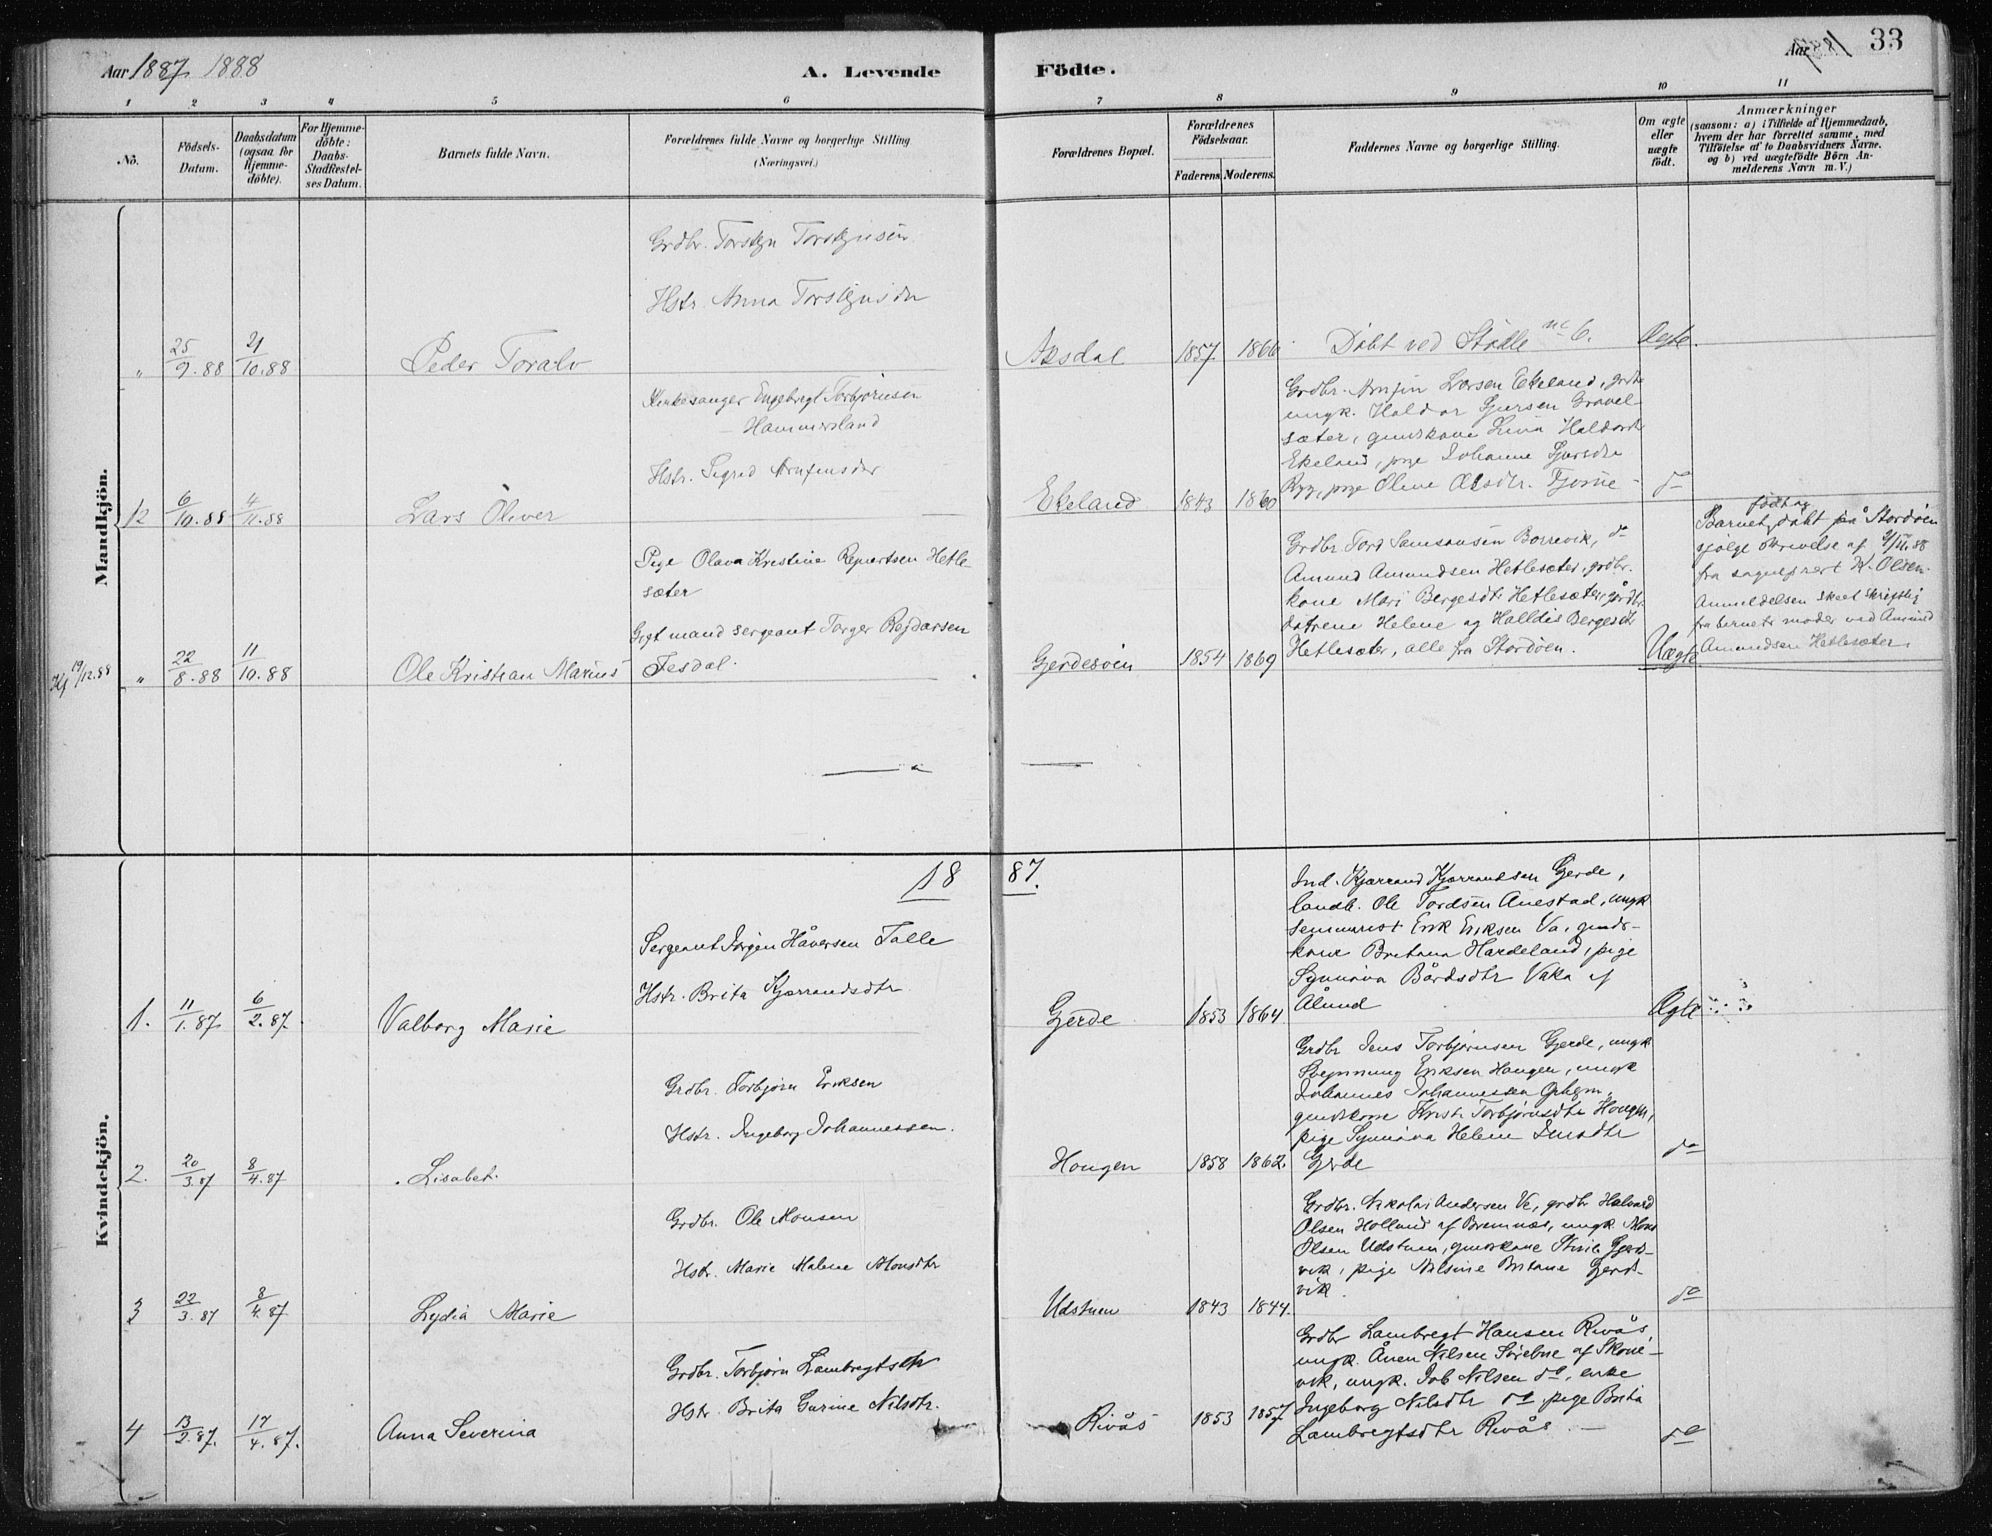 Aar 1887. 1888
A. Levende
Födte.
Aar 1887
33
1 2 3 4 5 6 7 8 9 10 11
Nô.
Födsels-
Datum.
Daabsdatum
(ogsaa for
Hjemme-
döbte).
For Hjemme-
döbte:
Daabs-
Stadfæstel-
ses Datum.
Barnets fulde Navn.
Forældrenes fulde Navne og borgerlige Stilling
(Næringsvei.)
Forældrenes Bopæl.
Forældrenes
Födselsaar.
Faderens. Moderens.
Faddernes Navne og borgerlige Stilling.
Om ægte
eller
uægte
födt.
Anmærkninger
(saasom: a) i Tilfælde af Hjemmedaab,
hvem der har forrettet samme, med
Tilföielse af to Daabsvidners Navne.
og b) ved uægtefödte Börn An-
melderens Navn m. V.)
Mandkjön.
"
25/9.88
21/10.88
Peder Toralv
Grdbr. Torstejn Torstejnsen
Hstr. Anna Torstejnsdtr
Aksdal
1857
1866
Döbt ved Stödle no 6.
Ægte.
12
6/10.88
4/11.88
Lars Oliver
Kirkesanger Engebregt Torbjörnsen
Hammersland
Hstr. Sigrid Arnfinsdtr
Ekeland
1843
1860
Grdbr. Arnfin Larsen Ekeland, grdbr
ungk. Haldor Sjursen Gravel-
sæter, gmdskone Lina Haldorsdtr
Ekeland, pige Johanne Sjursdtr
pige Oline Olsdtr. Fjøne
do
Kf 19/12.88
"
22/8.88
11/10.88
Ole Kristian Marius
Pige Olava Kristine Rejnertsen Hetle-
sæter
Gigt mand sergeant Torger Rejdarsen
Tesdal.
Gjerdesöen
1854
1869
Grdbr Tord Samsonsen Borrevik, do
Amund Amundsen Hetlesæter, grdbr.
kone Mari Bergesdtr Hetlesæter, gårdbr.
døtrene Helene og Halldis Bergesdtr
Hetlesæter, alle fra Stordöen.
Uægte
födt og
Barnet, döbt på Stordöen
ifølge skrivelse af 9/11.88
fra sogneprest K. Olsen.
Anmeldelsen skeet skriftlig
fra barnets moder ved Amund
Amundsen Hetlesæter.
Kvindekjön.
1887.
1.
11/1.87
6/2.87
Valborg Marie
Sergeant Jörgen Håversen Talle
Hstr. Brita Kjærrandsdtr
Gjerde
1853
1864
Ind. Kjærrand Kjærrandsen Gjerde,
landh. Ole Tordsen Anestad, ungk
seminarist Erik Eriksen Va, gmds-
kone Britana Hardeland, pige
Synnöva Bårdsdtr Vaka af
Ålund
Ægte
2.
20/3.87
8/4.87
Lisabet.
Grdbr. Torbjörn Eriksen
Hstr. Ingeborg Johannessen.
Hougen
1858
1862.
Grdbr Jens Torbjörnsen Gjerde, ungk
Svejnung Eriksen Hougen, ungk
Johannes Johannessen
gmdskone Kristi Torbjörnsdtr Hougen,
pige Synnöva Helene Jensdtr
Gjerde
do
3
22/3.87
8/4.87
Lydia Marie
Grdbr. Ole Monsen
Hstr. Marie Malene Monsdtr
Udstuen
1843
1844.
Grdbr. Nikolai Andersen Ve, grdbr Halvard
Olsen Holland af Bremnæs, ungk Mons
Olsen Udstuen, gmdskone Sirile Gjerds-
vik, pige Nilsine Britane Gjerds-
vik.
do
4
13/2.87.
17/4.87.
Anna Severina
Grdbr. Torbjörn Lambregtsen
Hstr. Brita Gurine Nilsdtr.
Rivås
1853
1857
Grdbr Lambregt Hansen Rivås,
ungk. Ånen Nilsen Sörebne af Skone-
vik, ungk. Job Nilsen do, enke
Ingeborg Nilsdtr do, pige Brita
Lambregtsdtr Rivås.
do